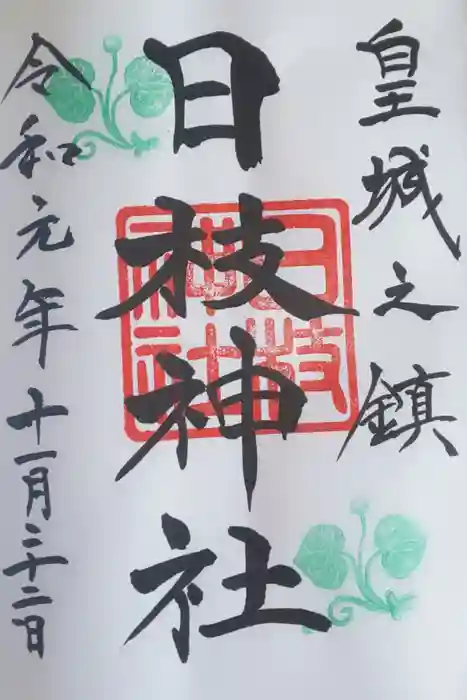 皇城之鎮
日枝神社
令和元年十一月二十二日
日枝
神社